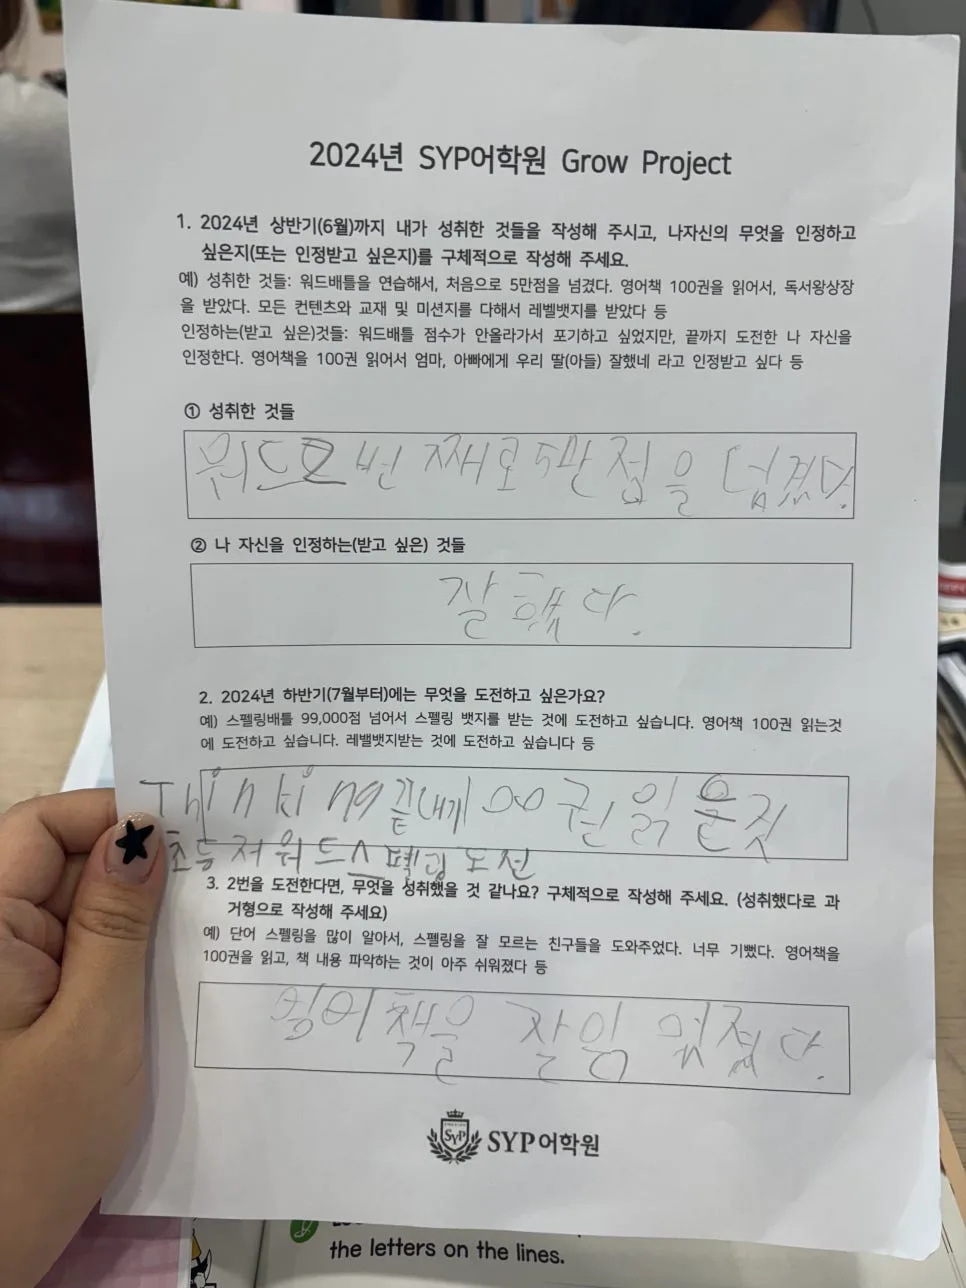 2024년 SYP어학원 Grow Project
1. 2024년 상반기(6월)까지 내가 성취한 것들을 작성해 주시고, 나자신의 무엇을 인정하고
싶은지(또는 인정받고 싶은지)를 구체적으로 작성해 주세요.
예) 성취한 것들: 워드배틀을 연습해서, 처음으로 5만점을 넘겼다. 영어책 100권을 읽어서, 독서왕상장
을 받았다. 모든 컨텐츠와 교재 및 미션지를 다해서 레벨뱃지를 받았다 등
인정하는(받고 싶은)것들: 워드배틀 점수가 안올라가서 포기하고 싶었지만, 끝까지 도전한 나 자신을
인정한다. 영어책을 100권 읽어서 엄마, 아빠에게 우리 딸(아들) 잘했네 라고 인정받고 싶다 등
① 성취한 것들
워드2번 째로 5만점을 넘겼다.
② 나 자신을 인정하는(받고 싶은) 것들
잘했다.
2. 2024년 하반기(7월부터)에는 무엇을 도전하고 싶은가요?
예) 스펠링배틀 99,000점 넘어서 스펠링 뱃지를 받는 것에 도전하고 싶습니다. 영어책 100권 읽는것
에 도전하고 싶습니다. 레밸뱃지받는 것에 도전하고 싶습니다 등
Thinking 끝내기 00권 읽을것
초등저워드스펠링 도전
3. 2번을 도전한다면, 무엇을 성취했을 것 같나요? 구체적으로 작성해 주세요. (성취했다로 과
거형으로 작성해 주세요)
예) 단어 스펠링을 많이 알아서, 스펠링을 잘 모르는 친구들을 도와주었다. 너무 기뻤다. 영어책을
100권을 읽고, 책 내용 파악하는 것이 아주 쉬워졌다 등
책을 잘
SYP
SYP어학원
the letters on the lines.